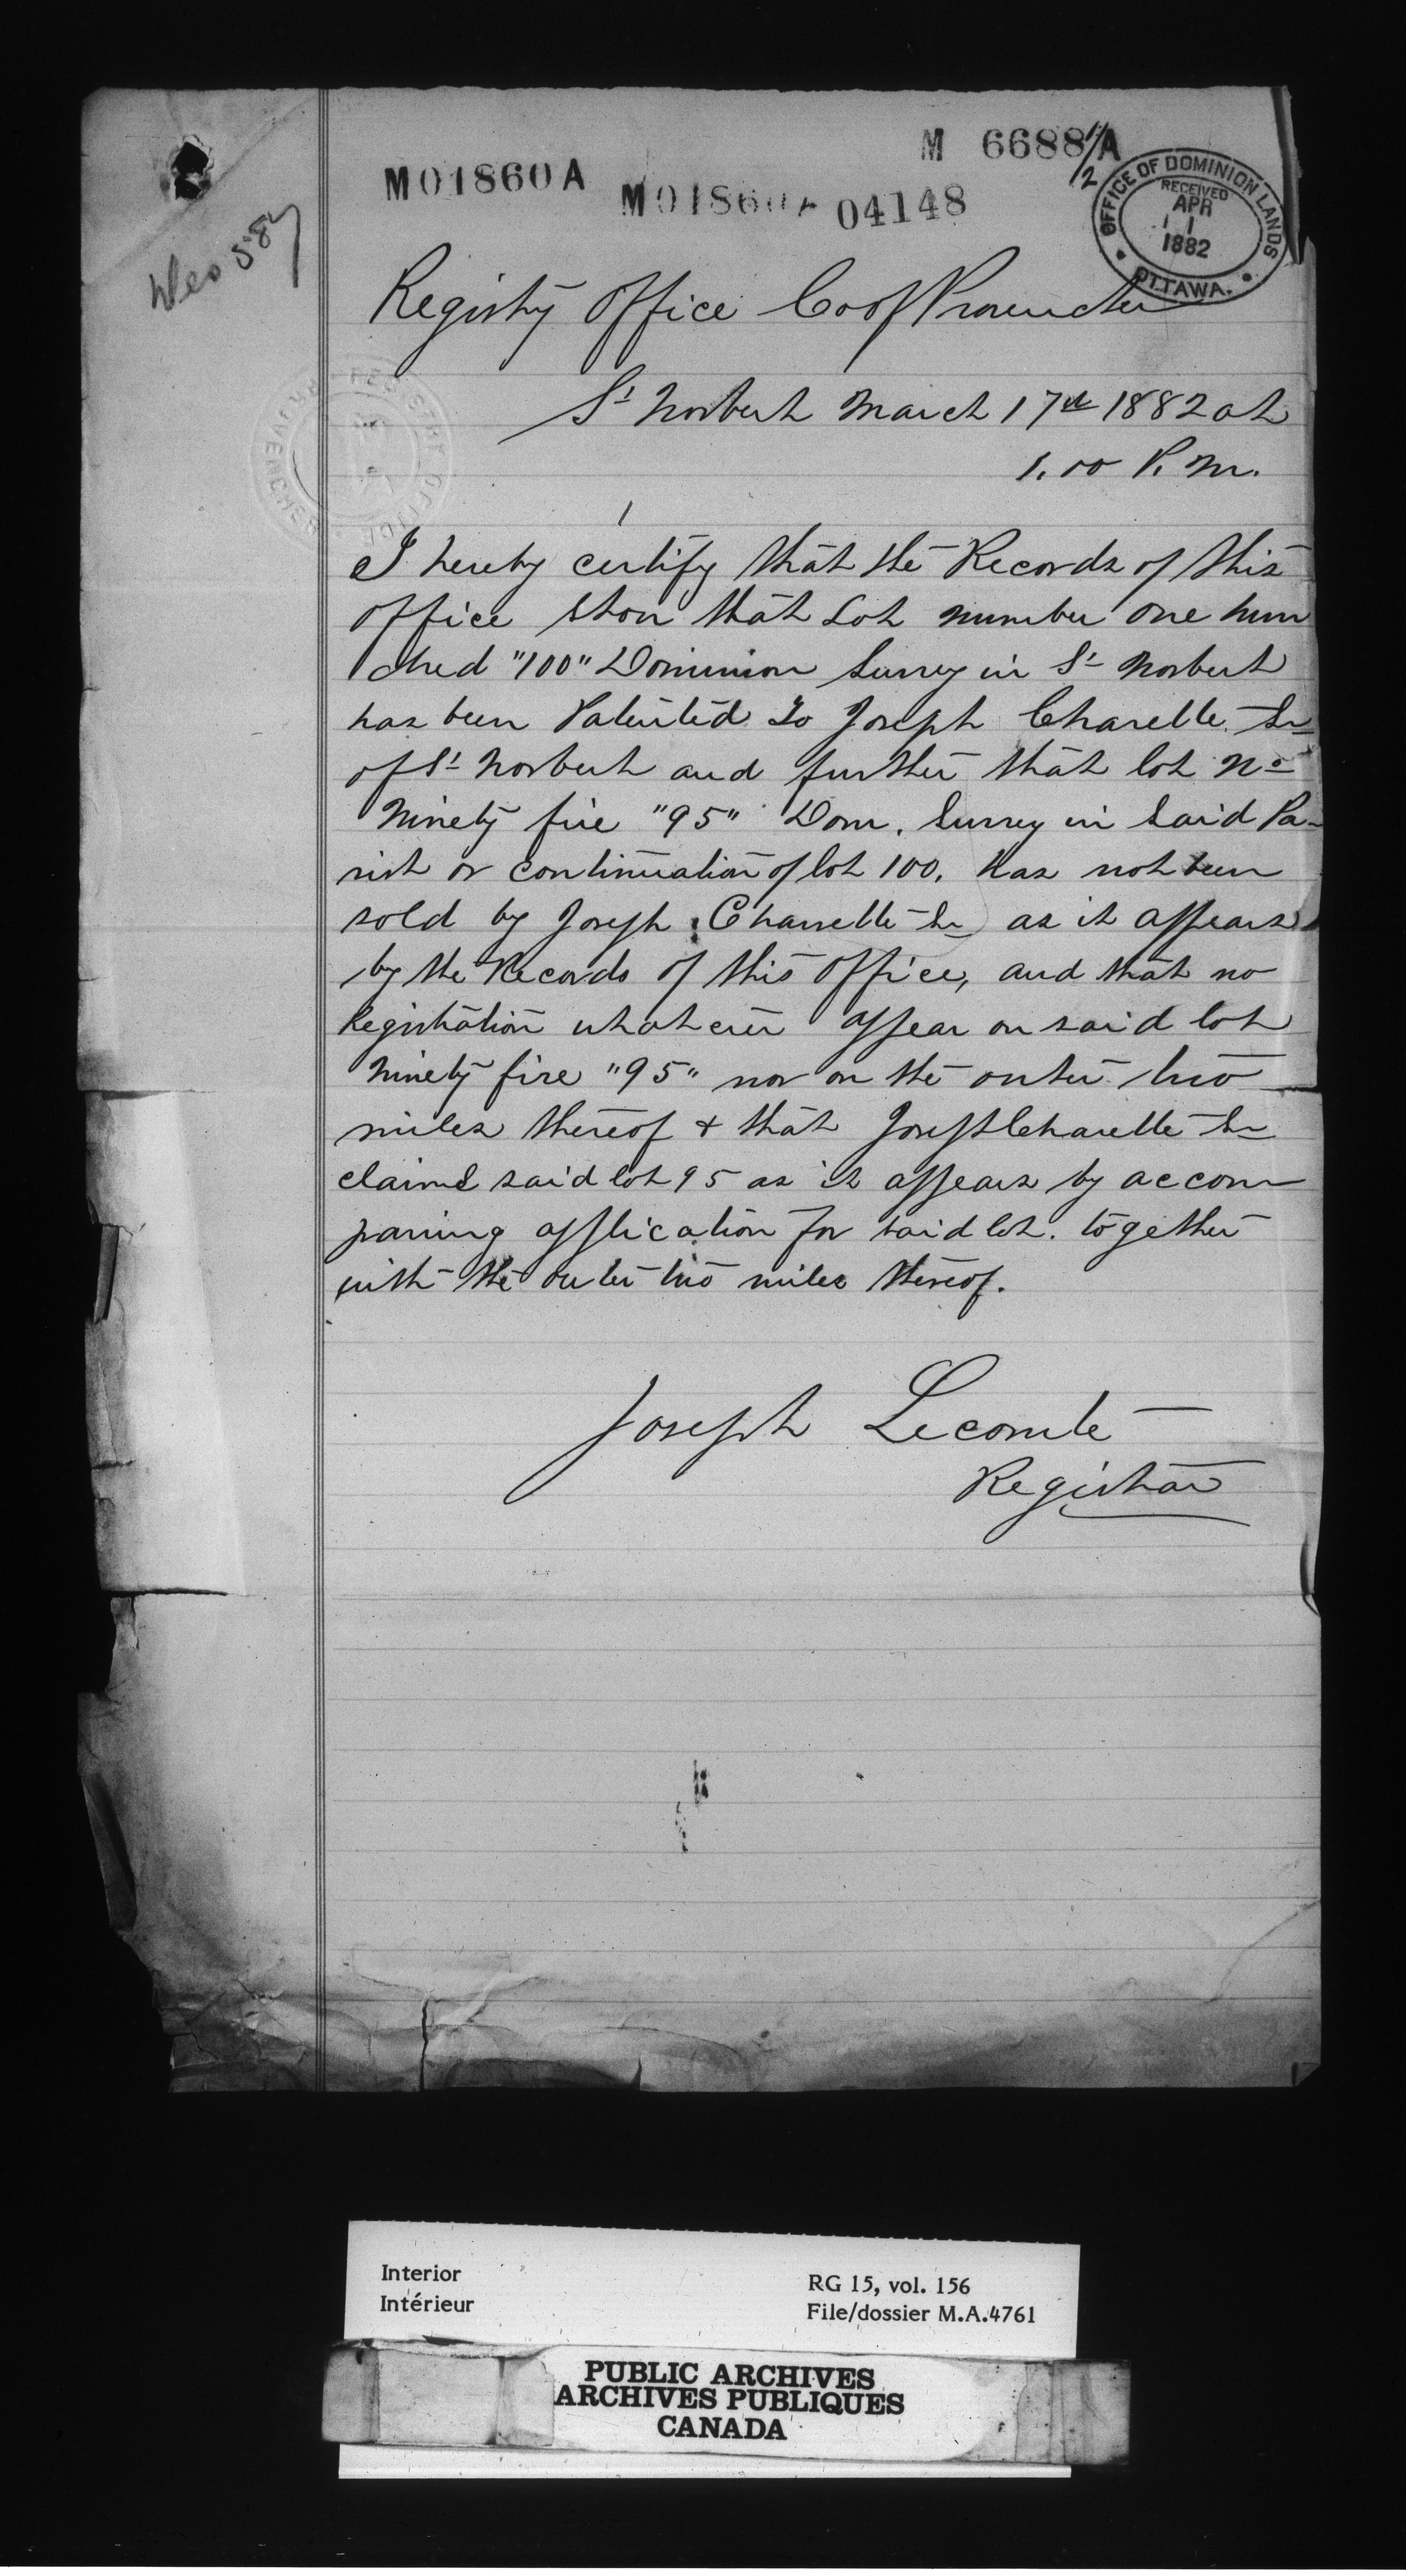 M 6688 1/2 A
M01860A
M01860A 04148
OFFICE OF DOMINION LANDS
RECEIVED
APR
11
1882
OTTAWA.
587
Registry Office Co of Provencher
REGISTRY OFFICE
PROVENCHER
St Norbert March 17th 1882 at
1.00 P.M.
I hereby certify that the Records of this
Office show that Lot number one hun
dred "100" Dominion Survey in St Norbert
has been Patented to Joseph Charette Sr
of St Norbert and further that lot No
Ninety five "95" Dom. Survey in Said Pa-
rish or continuation of lot 100. has not been
sold by Joseph Charrette Sr as it appears
by the Records of this Office, and that no
Registration whatever appear on said lot
Ninety five "95" nor on the outer two
miles thereof & that Joseph Charette Sr
claims said lot 95 as it appears by accom
paning application for said lot. together
with the outer two miles thereof.
Joseph Lecomte
Registrar
Interior
Intérieur
RG 15, vol. 156
File/dossier M.A.4761
PUBLIC ARCHIVES
ARCHIVES PUBLIQUES
CANADA